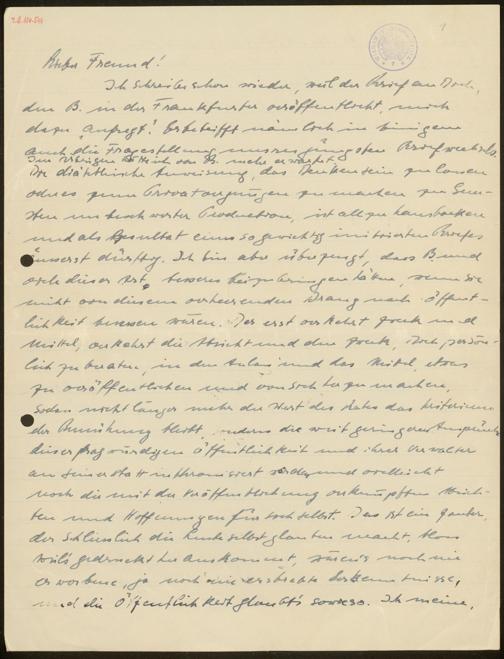 Lieber Freund!
Ich schreibe schon wieder, weil der Brief an Koch,
den B. in der Frankfurter veröffentlicht, mich
dazu "anregt". Er betrifft nämlich in einigem
auch die Fragestellung unseres jüngsten Briefwechsels.
Im übrigen hätte ich von B. mehr erwartet.
Die diätetische Anweisung, das Denken sein zu lassen
oder es zum Privatvergnügen zu machen zu Gun-
sten unbeschwerter Production, ist allzu hausbacken
und als Resultat eines so gewichtig initiierten Briefes
äusserst dürftig. Ich bin aber überzeugt, dass B. und
viele dieser Art, besseres beizubringen hätten, wenn sie
nicht von diesem verheerenden Drang nach Öffent-
lichkeit besessen wären. Der erst verkehrt Zweck und
Mittel, verkehrt die Absicht und den Zweck, Koch persön-
lich zu beraten, in den Anlass und das Mittel, etwas
zu veröffentlichen und von sich her zu machen,
sodass nicht länger mehr der Wert des Rates das Kriterium
der Bemühung bleibt, sondern die weit geringeren Ansprüche
dieser fragwürdigen Öffentlichkeit und ihrer Verwalter
an seiner statt inthronisiert werden und vielleicht
noch die mit der Veröffentlichung verknüpften Absich-
ten und Hoffnungen für sich selbst. Das ist ein Zauber,
der schliesslich die Leute selbst glauben macht, bloss
weils gedruckt herauskommt, wärens noch nie
erworbene, ja noch nie erstrebte Erkenntnisse,
und die Öffentlichkeit glaubts sowieso. Ich meine,
1